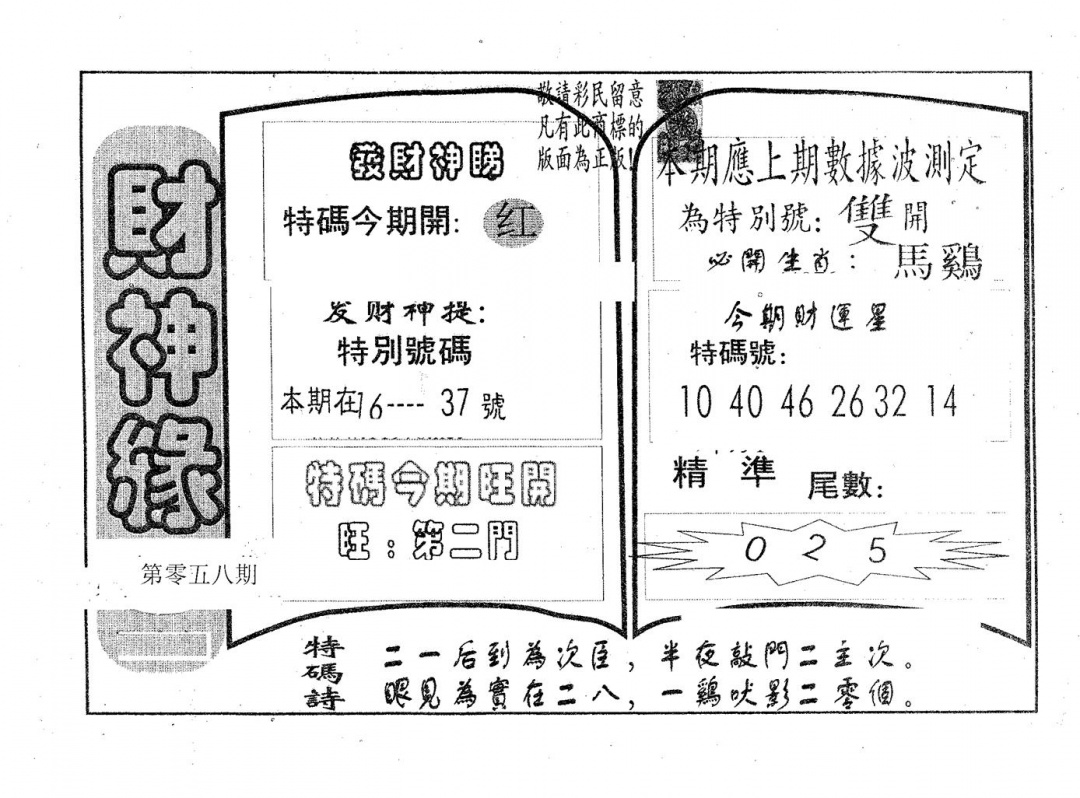 財神緣
第零五八期
敬請彩民留意
凡有此商標的
版面為正版!
發財神睇
特碼今期開: 红
发财神提:
特別號碼
本期在16----37號
特碼今期旺開
旺:第二門
本期應上期數據波測定
為特別號: 雙開
必開生肖: 馬鷄
今期財運星
特碼號:
10 40 46 26 32 14
精準 尾數:
0 2 5
特碼詩
二一后到為次臣,半夜敲門二主次。
眼見為實在二八,一鷄吠影二零個。